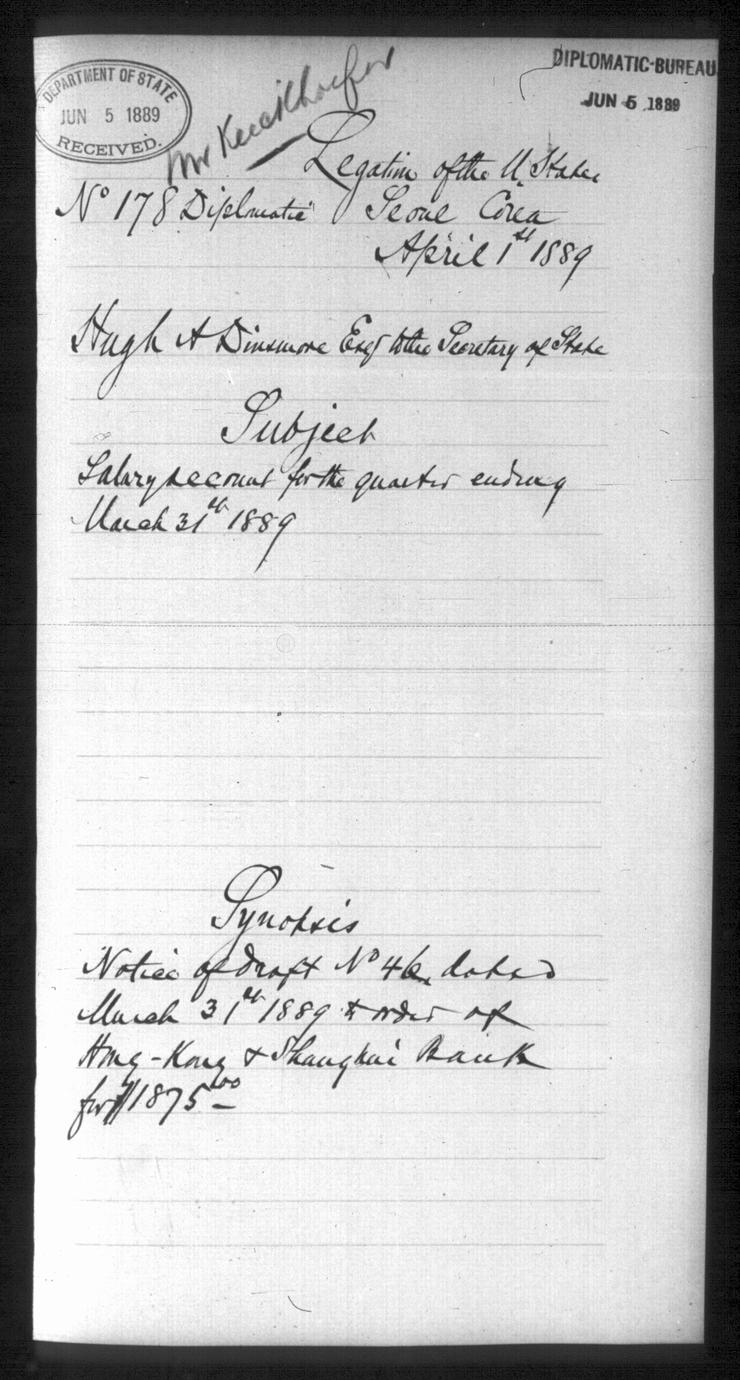 DEPARTMENT OF STATE
JUN 5 1889
RECEIVED.
DIPLOMATIC-BUREAU
JUN 5 1889
Mr Keeilhoefer
Legation of the U. States
No 178 Diplomatic Seoul Corea
April 1st 1889
Hugh A Dinsmore Esq to the Secretary of State
Subject
Salary account for the quarter ending
March 31st 1889
Synopsis
Notice of draft No 46, dated
March 31st 1889 to order of
Hong-Kong & Shanghai Bank
for $1875.00